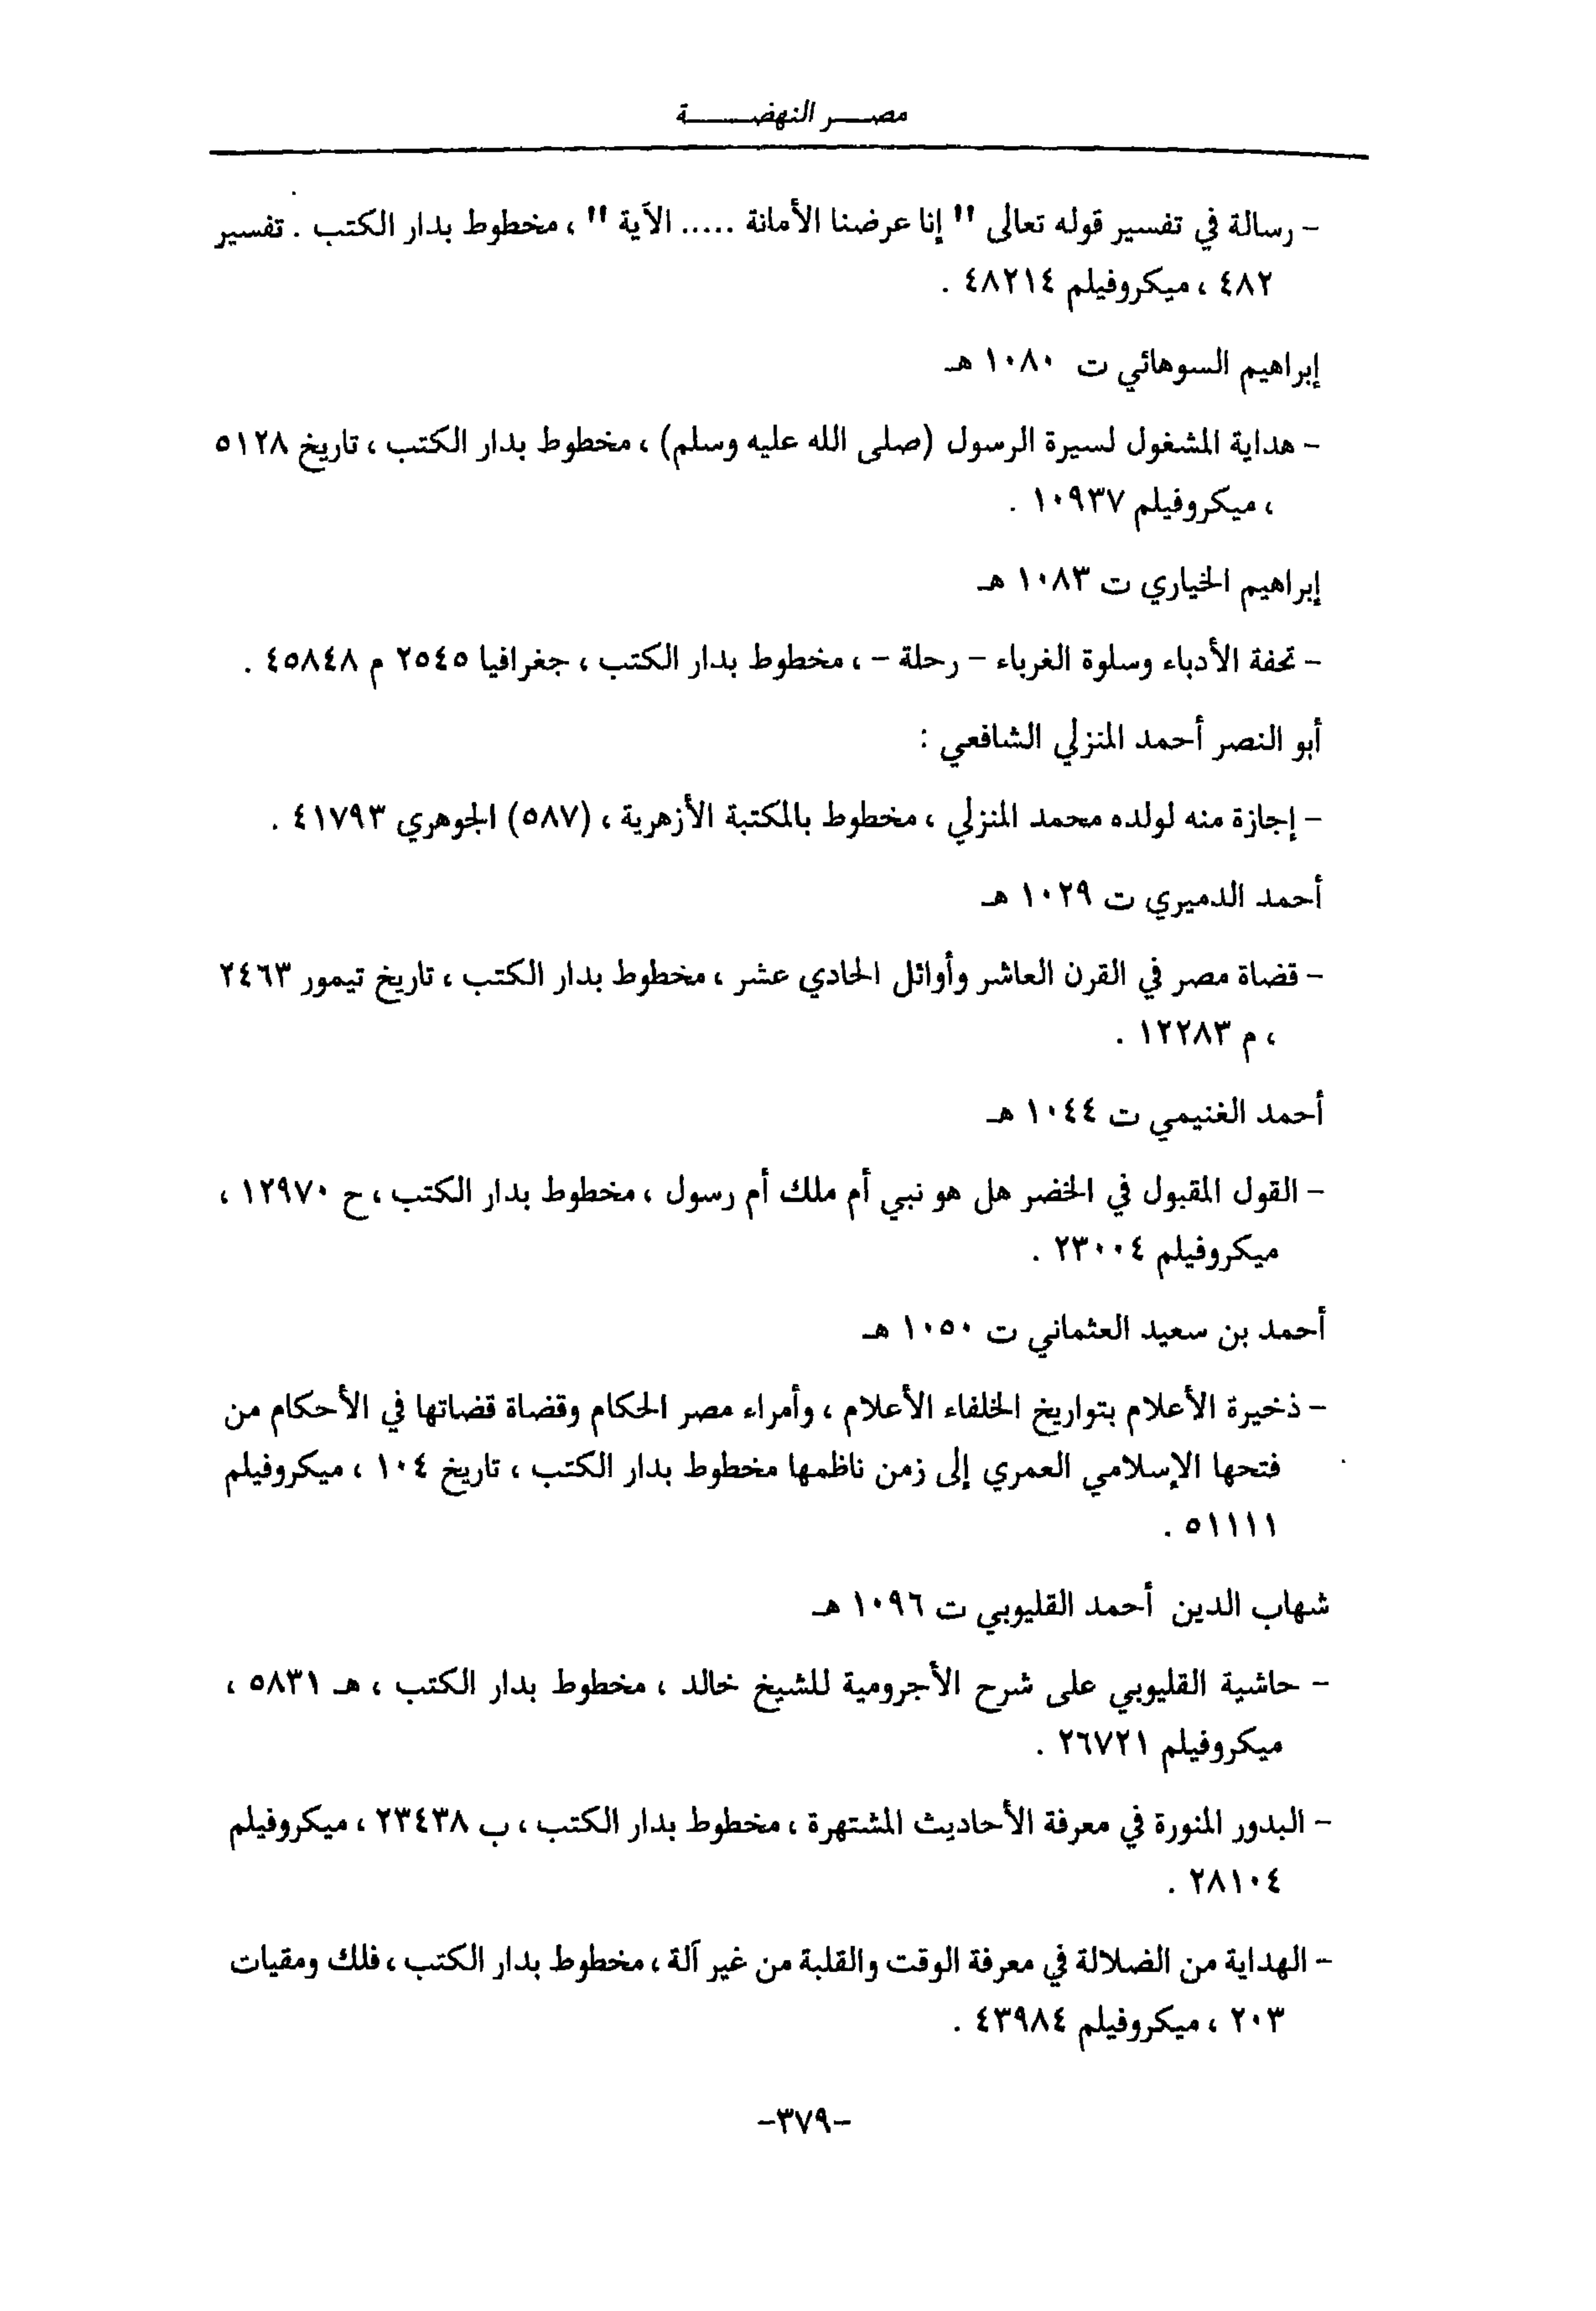 مصر النهضة
- رسالة في تفسير قوله تعالى " إنا عرضنا الأمانة ..... الآية " ، مخطوط بدار الكتب . تفسير
٤٨٢ ، ميكروفيلم ٤٨٢١٤ .
إبراهيم السوهائي ت ١٠٨٠ هـ
- هداية المشغول لسيرة الرسول (صلى الله عليه وسلم) ، مخطوط بدار الكتب ، تاريخ ٥١٢٨
، ميكروفيلم ١٠٩٣٧ .
إبراهيم الخياري ت ١٠٨٣ هـ
- تحفة الأدباء وسلوة الغرباء - رحلة - ، مخطوط بدار الكتب ، جغرافيا ٢٥٤٥ م ٤٥٨٤٨ .
أبو النصر أحمد المنزلي الشافعي :
- إجازة منه لولده محمد المنزلي ، مخطوط بالمكتبة الأزهرية ، (٥٨٧) الجوهري ٤١٧٩٣ .
أحمد الدميري ت ١٠٢٩ هـ
- قضاة مصر في القرن العاشر وأوائل الحادي عشر ، مخطوط بدار الكتب ، تاريخ تيمور ٢٤٦٣
، م ١٢٢٨٣ .
أحمد الغنيمي ت ١٠٤٤ هـ
- القول المقبول في الخضر هل هو نبي أم ملك أم رسول ، مخطوط بدار الكتب ، ح ١٢٩٧٠ ،
ميكروفيلم ٢٣٠٠٤ .
أحمد بن سعيد العثماني ت ١٠٥٠ هـ
- ذخيرة الأعلام بتواريخ الخلفاء الأعلام ، وأمراء مصر الحكام وقضاة قضاتها في الأحكام من
فتحها الإسلامي العمري إلى زمن ناظمها مخطوط بدار الكتب ، تاريخ ١٠٤ ، ميكروفيلم
٥١١١١ .
شهاب الدين أحمد القليوبي ت ١٠٩٦ هـ
- حاشية القليوبي على شرح الأجرومية للشيخ خالد ، مخطوط بدار الكتب ، هـ ٥٨٣١ ،
ميكروفيلم ٢٦٧٢١ .
- البدور المنورة في معرفة الأحاديث المشتهرة ، مخطوط بدار الكتب ، ب ٢٣٤٣٨ ، ميكروفيلم
٢٨١٠٤ .
- الهداية من الضلالة في معرفة الوقت والقلبة من غير آلة ، مخطوط بدار الكتب ، فلك ومقيات
٢٠٣ ، ميكروفيلم ٤٣٩٨٤ .
-٣٧٩-